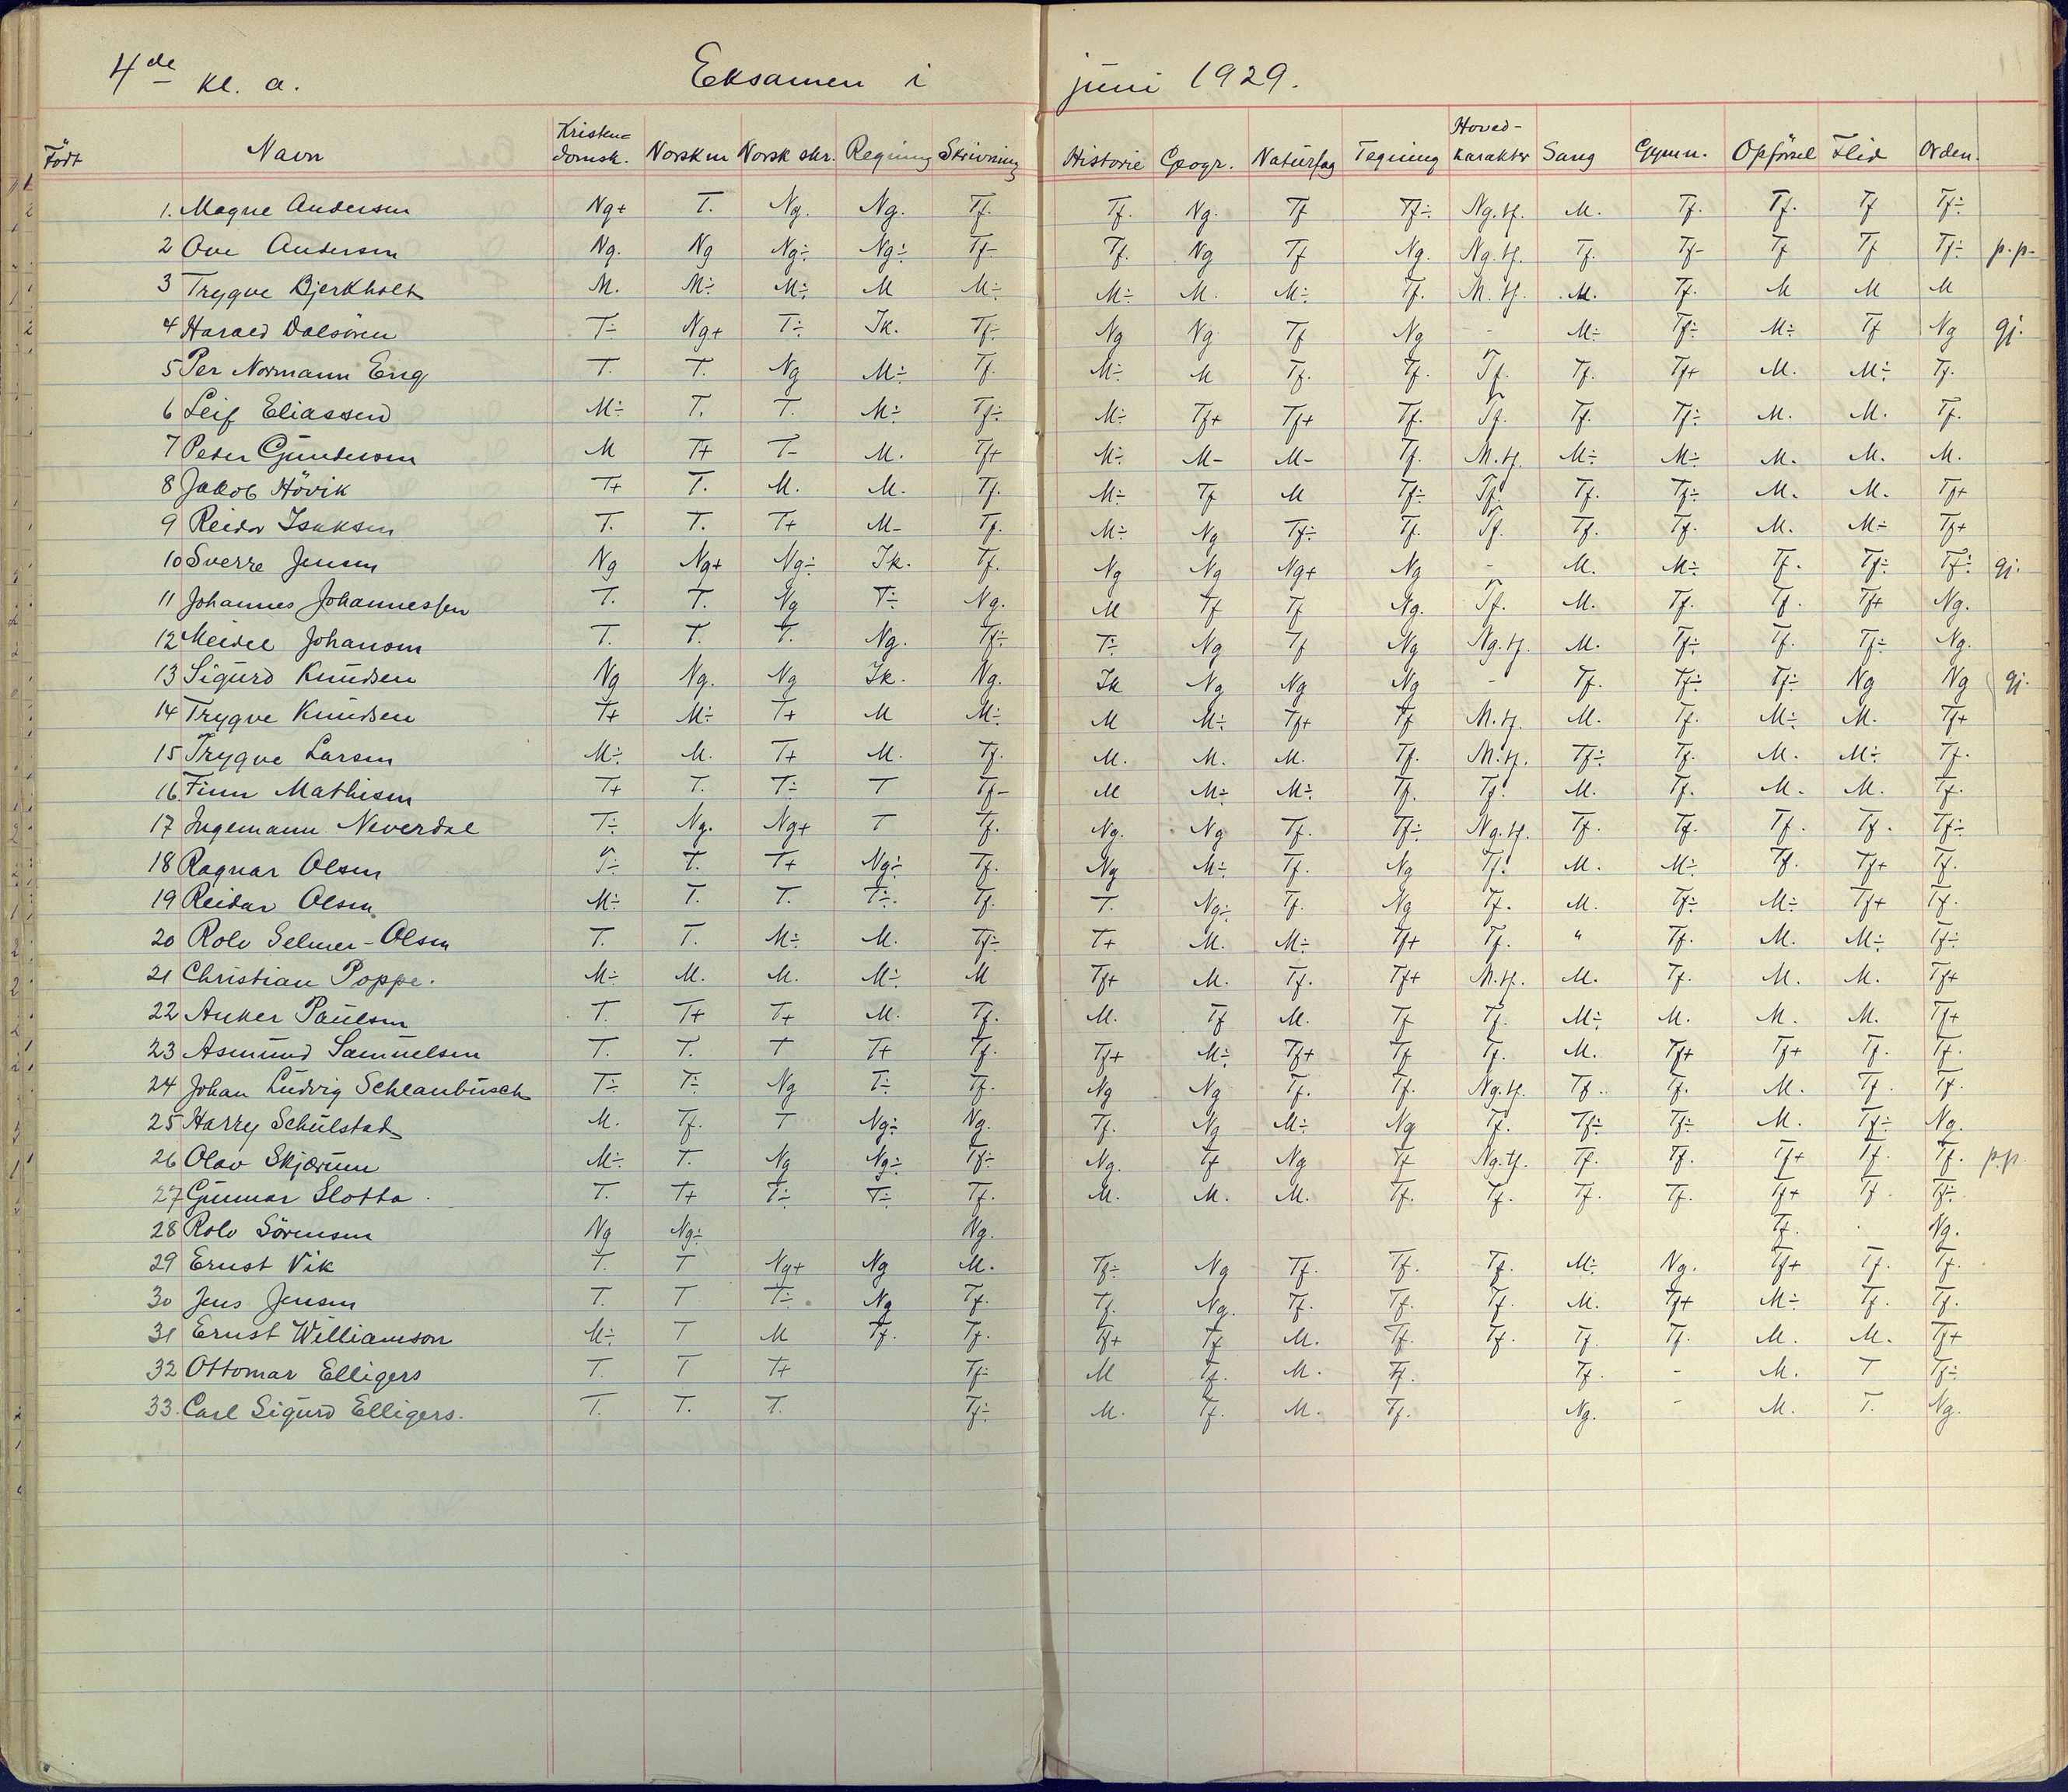 4de kl. a. Eksamen i juni 1929.
Født Navn Kristen=domsk. Norsk m Norsk skr. Regning Skrivning Historie Geogr. Naturfag Tegning Hoved-karakter Sang Gymn. Opförsel Flid Orden.
1. Magne Andersen Ng+ T. Ng. Ng. Tf. Tf. Ng. Tf Tf÷ Ng.tf. M. Tf. Tf. Tf Tf÷
2 Ove Andersen Ng. Ng Ng÷ Ng÷ Tf- Tf. Ng Tf Ng. Ng.tf. Tf. Tf- Tf Tf Tf÷ p.p.
3 Trygve Bjerkholt M. M÷ M÷ M M÷ M÷ M. M÷ Tf. M.tf. M. Tf. M M M
4 Harald Dalsören T÷ Ng+ T÷ Ik. Tf. Ng Ng Tf Ng - M÷ Tf÷ M÷ Tf Ng gj.
5 Per Normann Eng T. T. Ng M÷ Tf. M÷ M Tf. Tf. Tf. Tf. Tf+ M. M÷ Tf.
6 Leif Eliassen M÷ T. T. M÷ Tf÷ M÷ Tf+ Tf+ Tf. Tf. Tf. Tf÷ M. M. Tf.
7 Peder Gundersen M T+ T- M. Tf+ M÷ M- M- Tf. M.tf. M÷ M÷ M. M. M.
8 Jakob Hövik T+ T. M. M. Tf. M÷ Tf M Tf÷ Tf. Tf. Tf÷ M. M. Tf+
9 Reidar Isaksen T. T. T+ M- Tf. M÷ Ng Tf÷ Tf. Tf. Tf. Tf. M. M÷ Tf+
10 Sverre Jensen Ng Ng+ Ng÷ Ik. Tf. Ng Ng Ng+ Ng - M. M÷ Tf. Tf÷ Tf÷ gj.
11 Johannes Johannessen T. T. Ng T÷ Ng. M Tf Tf Ng. Tf. M. Tf. Tf. Tf+ Ng.
12 Meidel Johansen T. T. T. Ng. Tf÷ T÷ Ng Tf Ng Ng.tf. M. Tf÷ Tf. Tf÷ Ng.
13 Sigurd Knudsen Ng Ng. Ng Ik. Ng. Ik Ng Ng Ng - Tf. Tf÷ Tf÷ Ng Ng gj.
14 Trygve Knudsen T+ M÷ T+ M M÷ M M÷ Tf+ Tf M.tf. M. Tf. M÷ M. Tf+
15 Trygve Larsen M÷ M. T+ M. Tf. M. M. M. Tf. M.tf. Tf÷ Tf. M. M÷ Tf.
16. Finn Mathisen T+ T. T÷ T Tf- M M÷ M÷ Tf. Tf. M. Tf. M. M. Tf.
17 Ingemann Neverdal T÷ Ng. Ng+ T Tf. Ng. Ng Tf. Tf÷ Ng.tf. Tf. Tf. Tf. Tf. Tf÷
18 Ragnar Olsen T÷ T. T+ Ng÷ Tf. Ng M÷ Tf. Ng Tf. M. M÷ Tf. Tf+ Tf.
19 Reidar Olsen M÷ T. T. T÷. Tf. T. Ng÷ Tf. Ng Tf. M. Tf÷ M÷ Tf+ Tf.
20 Rolv Selmer-Olsen T. T. M÷ M. Tf÷ T+ M. M÷ Tf+ Tf. " Tf. M. M÷ Tf÷
21 Christian Poppe. M÷ M. M. M÷ M Tf+ M. Tf. Tf+ M.tf. M. Tf. M. M. Tf+
22 Anker Paulsen T. T+ T+ M. Tf. M. Tf M. Tf Tf. M÷ M. M. M. Tf+
23 Asmund Samuelsen T. T. T T+ Tf. Tf+ M÷ Tf+ Tf Tf. M. Tf+ Tf+ Tf. Tf.
24 Johan Ludvig Schlanbusch T÷ T÷ Ng T÷ Tf. Ng Ng Tf. Tf. Ng.tf. Tf. Tf. M. Tf. Tf.
25 Harry Schulstad M. Tf. T Ng÷ Ng. Tf. Ng M÷ Ng Tf. Tf÷ Tf÷ M. Tf÷ Ng.
26 Olav Skjærum M÷ T. Ng Ng÷ Tf÷ Ng. Tf Ng Tf Ng.tf. Tf. Tf. Tf+ Tf. Tf. p.p.
27 Gunnar Slotta. T. T+ T÷ T÷ Tf. M. M. M. Tf. Tf. Tf. Tf. Tf+ Tf. Tf÷
28 Rolv Sörensen Ng Ng÷ Ng. Tf. Ng.
29 Ernst Vik T. T Ng+ Ng M. Tf÷ Ng Tf. Tf. Tf. M÷ Ng. Tf+ Tf. Tf.
30 Jens Jensen T. T T÷. Ng Tf. Tf. Ng. Tf. Tf. Tf. M. Tf+ M÷ Tf. Tf.
31 Ernst Williamson M÷ T M Tf. Tf. Tf+ Tf M. Tf. Tf. Tf. Tf. M. M. Tf+
32 Ottomar Elligers T. T T+ Tf- M Tf. M. Tf. Tf. - M. T Tf÷
33. Carl Sigurd Elligers. T. T. T. Tf÷ M. Tf. M. Tf. Ng. - M. T. Ng.